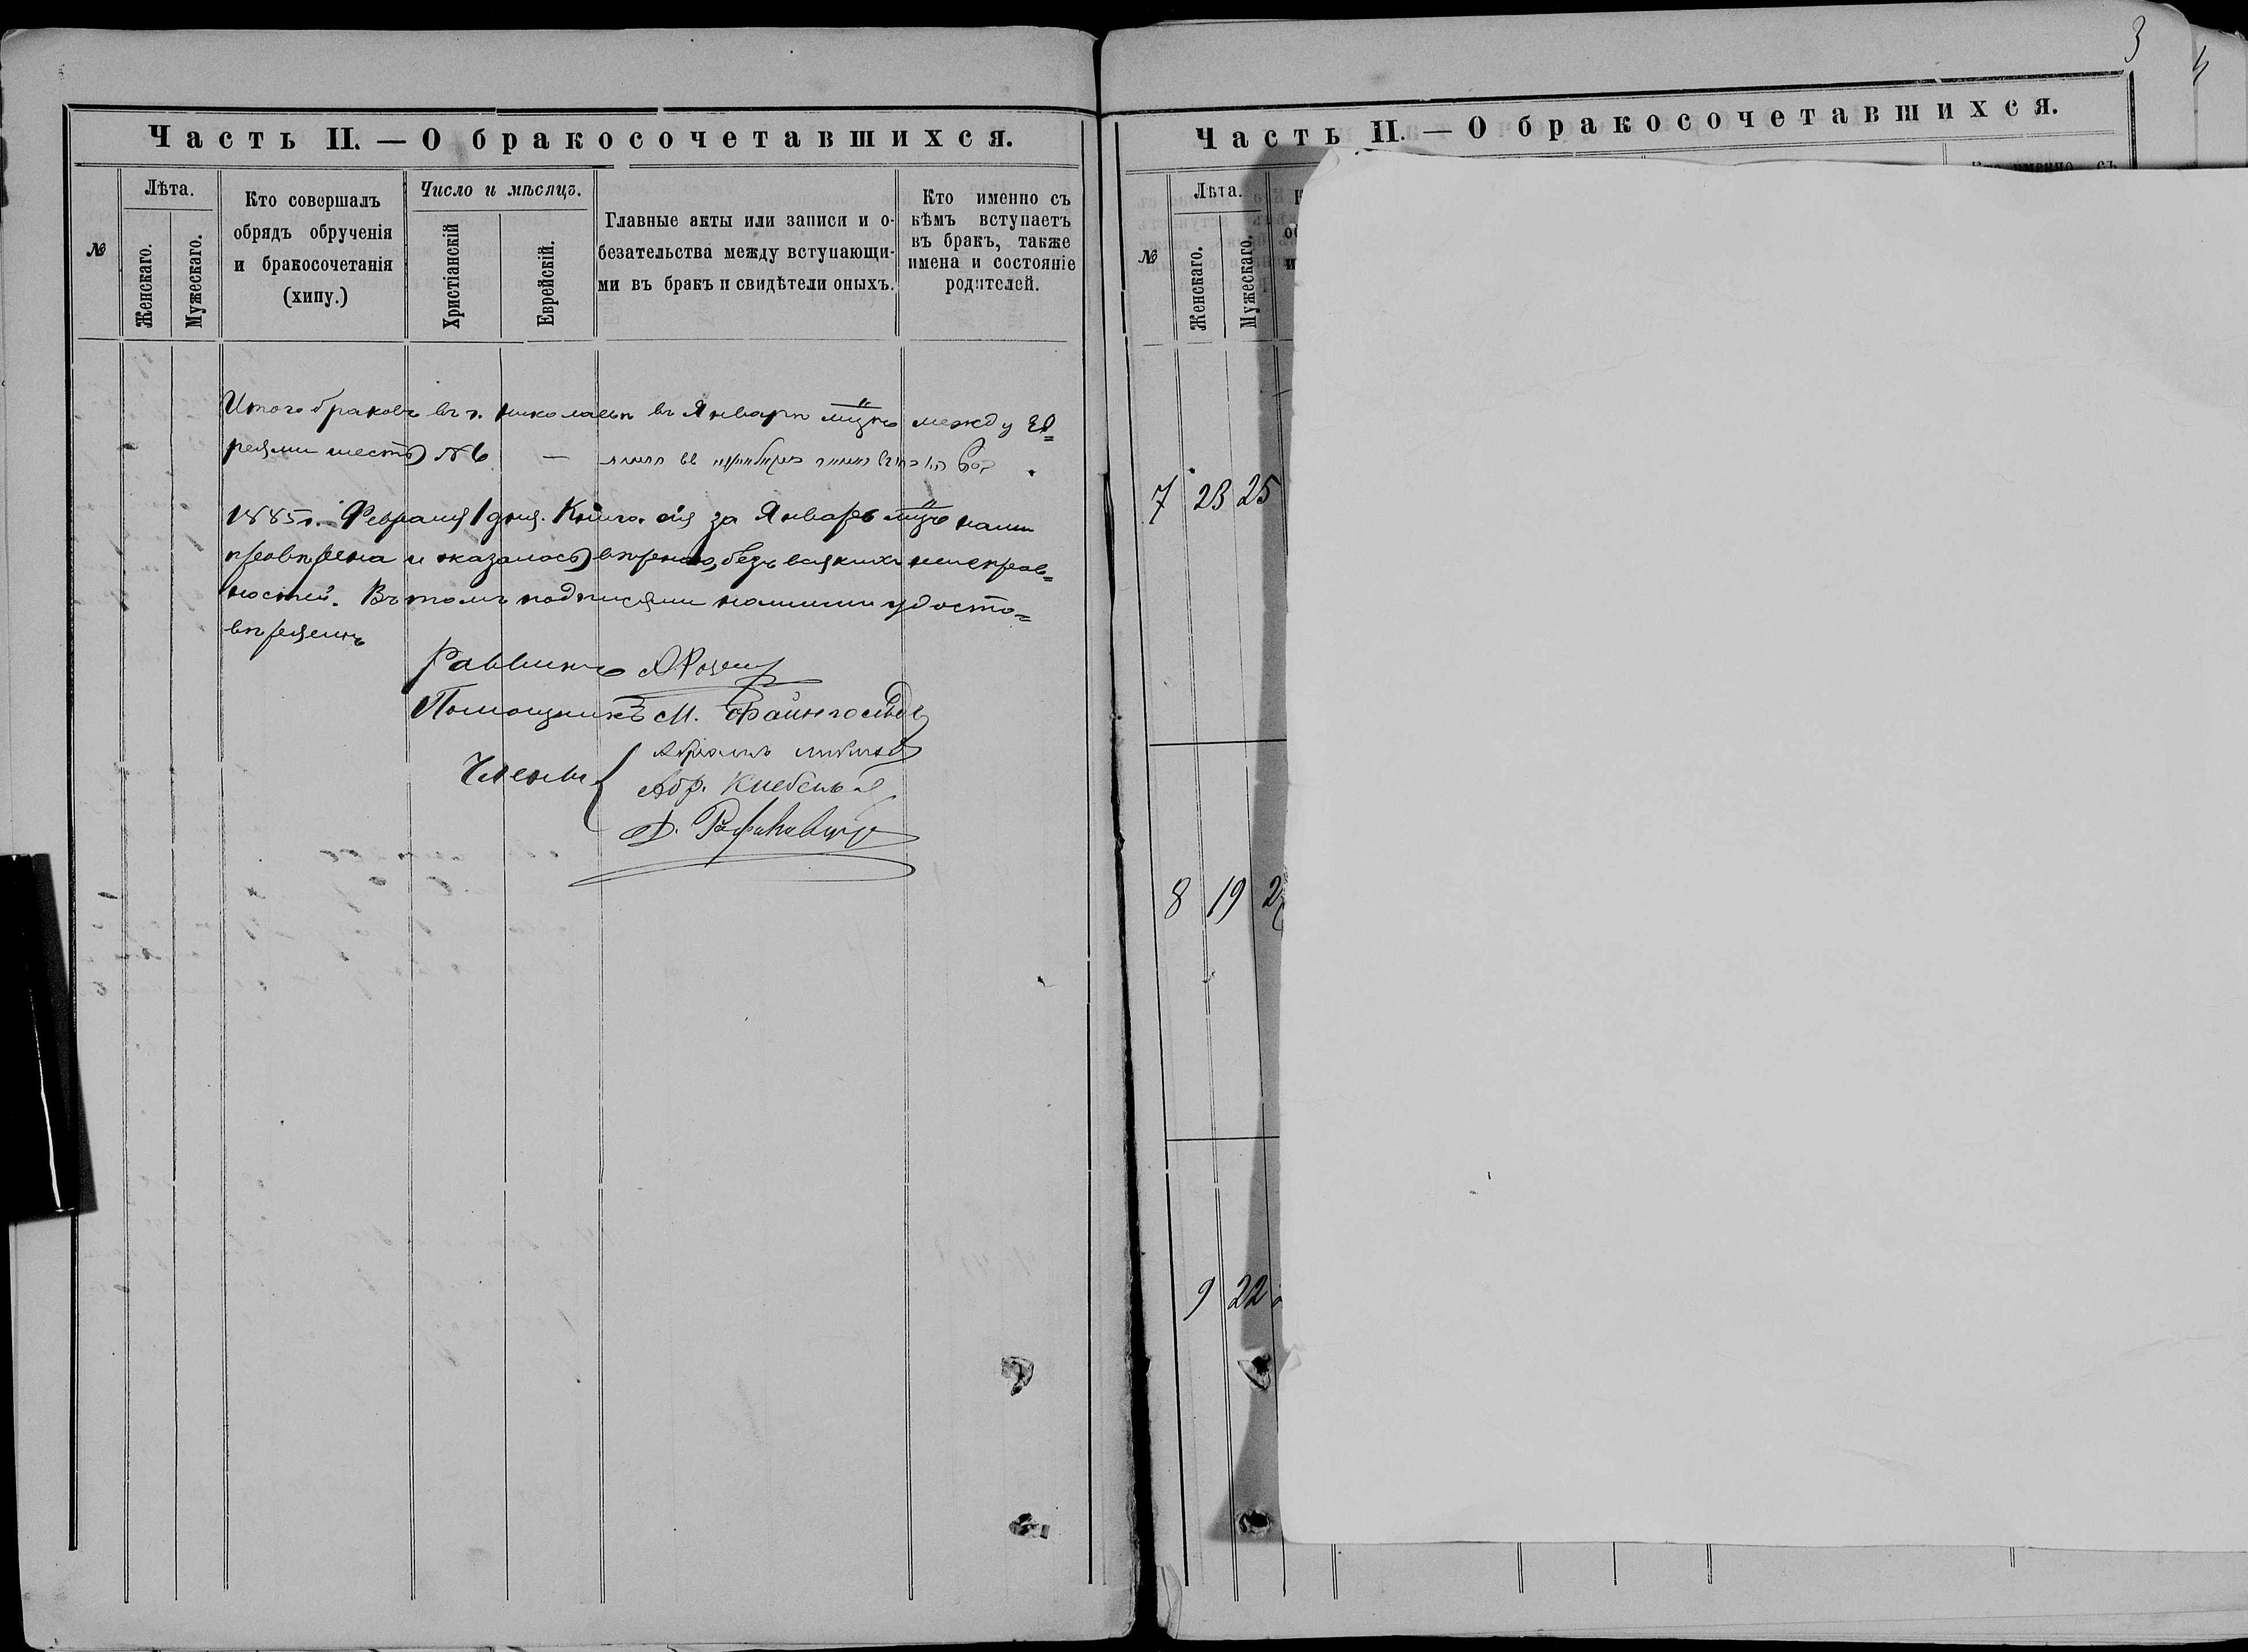 3
4
Часть II. — О бракосочетавшихся.
№
Лѣта.
Женскаго.
Мужескаго.
Кто совершалъ
обрядъ обрученія
и бракосочетанія
(хипу.)
Число и мѣсяцъ.
Христіанскій
Еврейскій.
Главные акты или записи и о-
безательства между вступающи-
ми въ бракъ и свидѣтели оныхъ.
Кто именно съ
кѣмъ вступаетъ
въ бракъ, также
имена и состояніе
родителей.
Итого браковъ въ г. Николаевѣ въ Январѣ мцѣ между Ев=
реями шесть №6 —
1885 г. Февраля 1 дня. Книга сія за Январь мцъ нами
провѣрена и оказалось вѣрною, безъ всякихъ неисправ=
ностей. Въ томъ подписями нашими удосто=
вѣряемъ
Раввинъ
Помощникъ М. Файнгольдъ
Члены
Абрамъ
Абр.
Часть II. — О бракосочетавшихся.
№
Лѣта.
Женскаго.
Мужескаго.
7 23 25
8 19
9 22